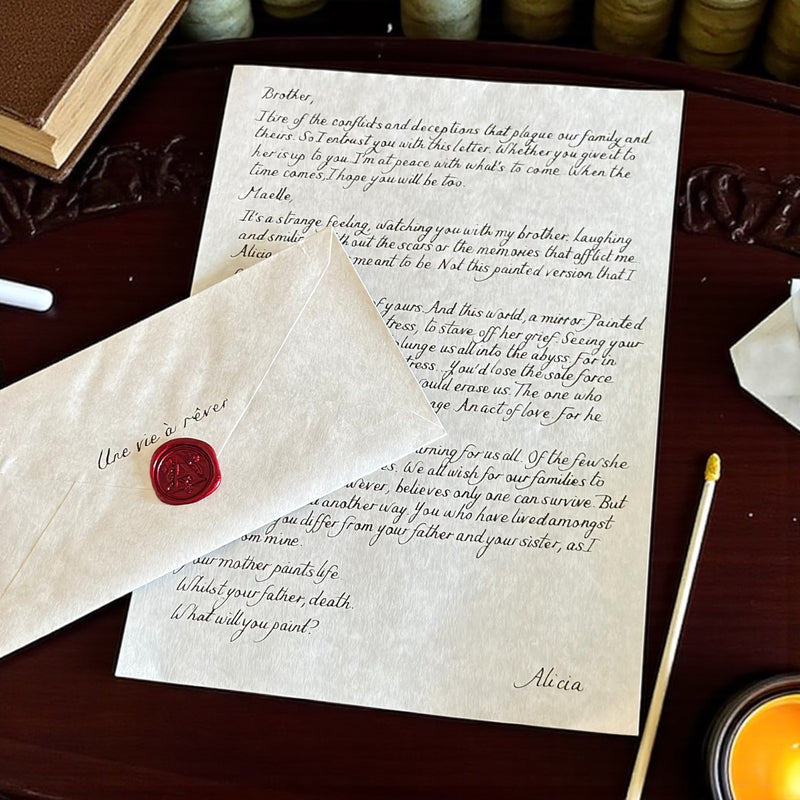 Brother,
I tire of the conflicts and deceptions that plague our family and
theirs. So I entrust you with this letter. Whether you give it to
her is up to you. I'm at peace with what's to come. When the
time comes, I hope you will be too.
Maelle,
It's a strange feeling, watching you with my brother. Laughing
and smiling without the scars or the memories that afflict me
Alicia meant to be. Not this painted version that I
of yours. And this world, a mirror. Painted
to stave off her grief. Seeing your
plunge us all into the abyss. For in
you'd lose the sole force
would erase us. The one who
An act of love. For he
for us all. Of the few she
We all wish for our families to
believes only one can survive. But
another way. You who have lived amongst
you differ from your father and your sister, as I
from mine.
Your mother paints life.
Whilst your father, death.
What will you paint?
Alicia
Une vie à rêver